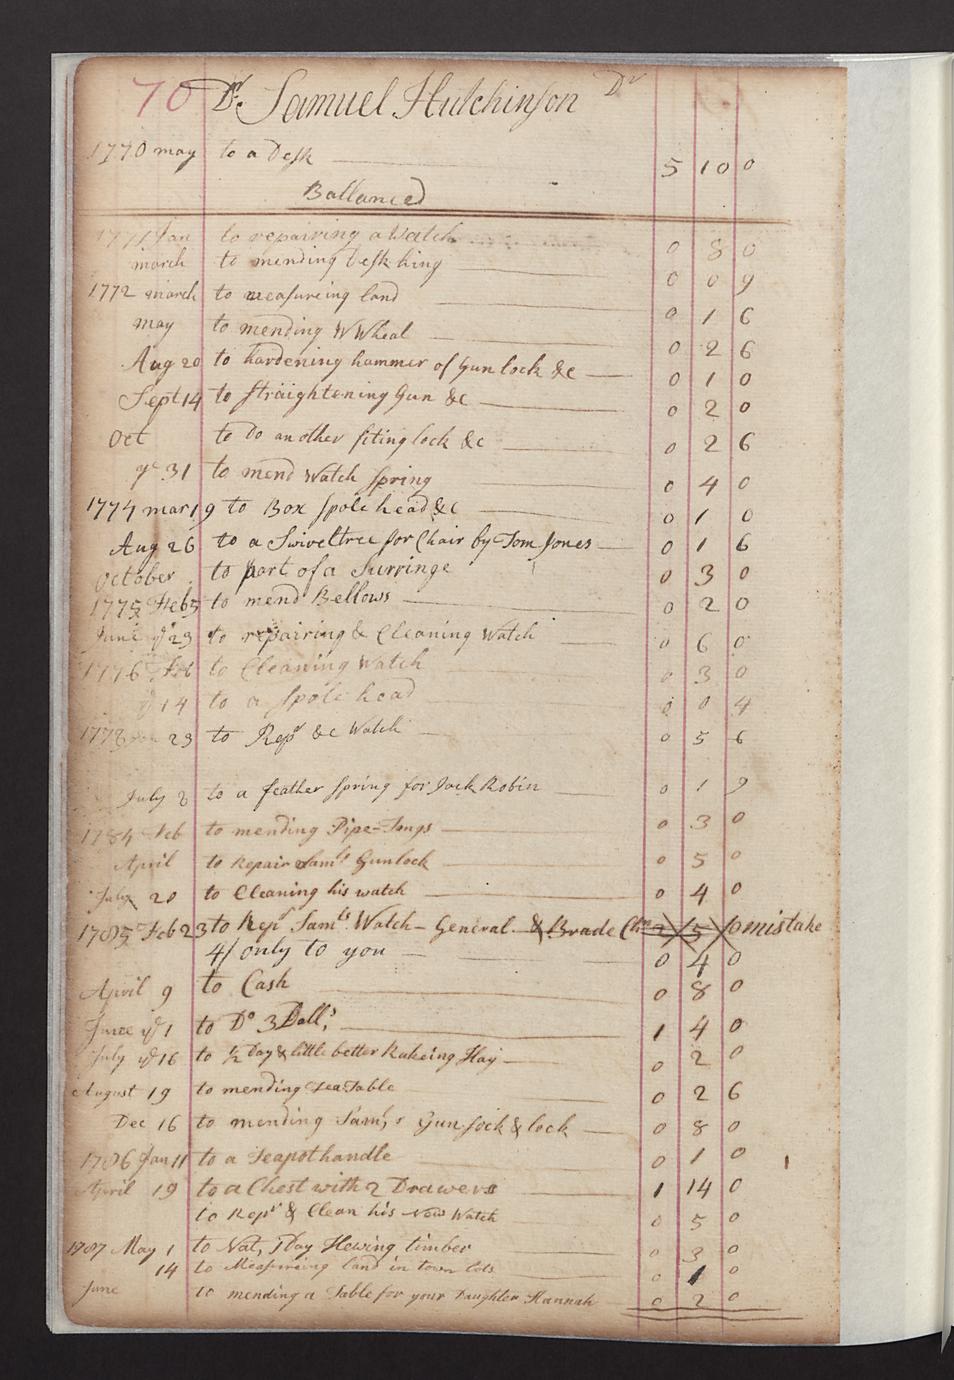 70 Dr. Samuel Hutchinson Dr
1770 may to a Desk 5 10 0
Ballanced
1771 Jan to repairing a Watch 0 8 0
march to mending Desk hing 0 0 9
1772 march to measureing land 0 1 6
may to mending W Wheal 0 2 6
Aug 20 to hardening hammer of Gun lock &c 0 1 0
Sept 14 to straightening Gun &c 0 2 0
Oct to Do another fiting lock &c 0 2 6
ye 31 to mend Watch Spring 0 4 0
1774 mar 19 to Box Spole head &c 0 1 0
Aug 26 to a Swiveltree for Chair by Tom Jones 0 1 6
October to part of a Surringe 0 3 0
1775 Feb 5 to mend Bellows 0 2 0
June ye 23 to repairing & Cleaning Watch 0 6 0
1776 Feb to Cleaning Watch 0 3 0
ye 14 to a Spole head 0 0 4
1778 23 to Repr &c Watch 0 5 6
July 2 to a feather Spring for Jack Robin 0 1 9
1784 Feb to mending Pipe=Tongs 0 3 0
April to Repair Samls Gunlock 0 5 0
July 20 to Cleaning his watch 0 4 0
1785 Feb 23 to Repr Samls Watch - General & Brade 5 0 mistake
4/ only to you 0 4 0
April 9 to Cash 0 8 0
June ye 1 to Do 3 Dolls 1 4 0
July ye 16 to 1/2 Day & little better Rakeing Hay 0 2 0
August 19 to mending Tea Table 0 2 6
Dec 16 to mending Saml,s Gun Sock & lock 0 8 0
1786 Jan 11 to a Teapothandle 0 1 0
April 19 to a Chest with 2 Drawers 1 14 0
to Repr & Clean his New Watch 0 5 0
1787 May 1 to Nat, 1 Day Hewing timber 0 3 0
14 to Measureing land in town lots 0 1 0
June to mending a Table for your Daughter Hannah 0 2 0